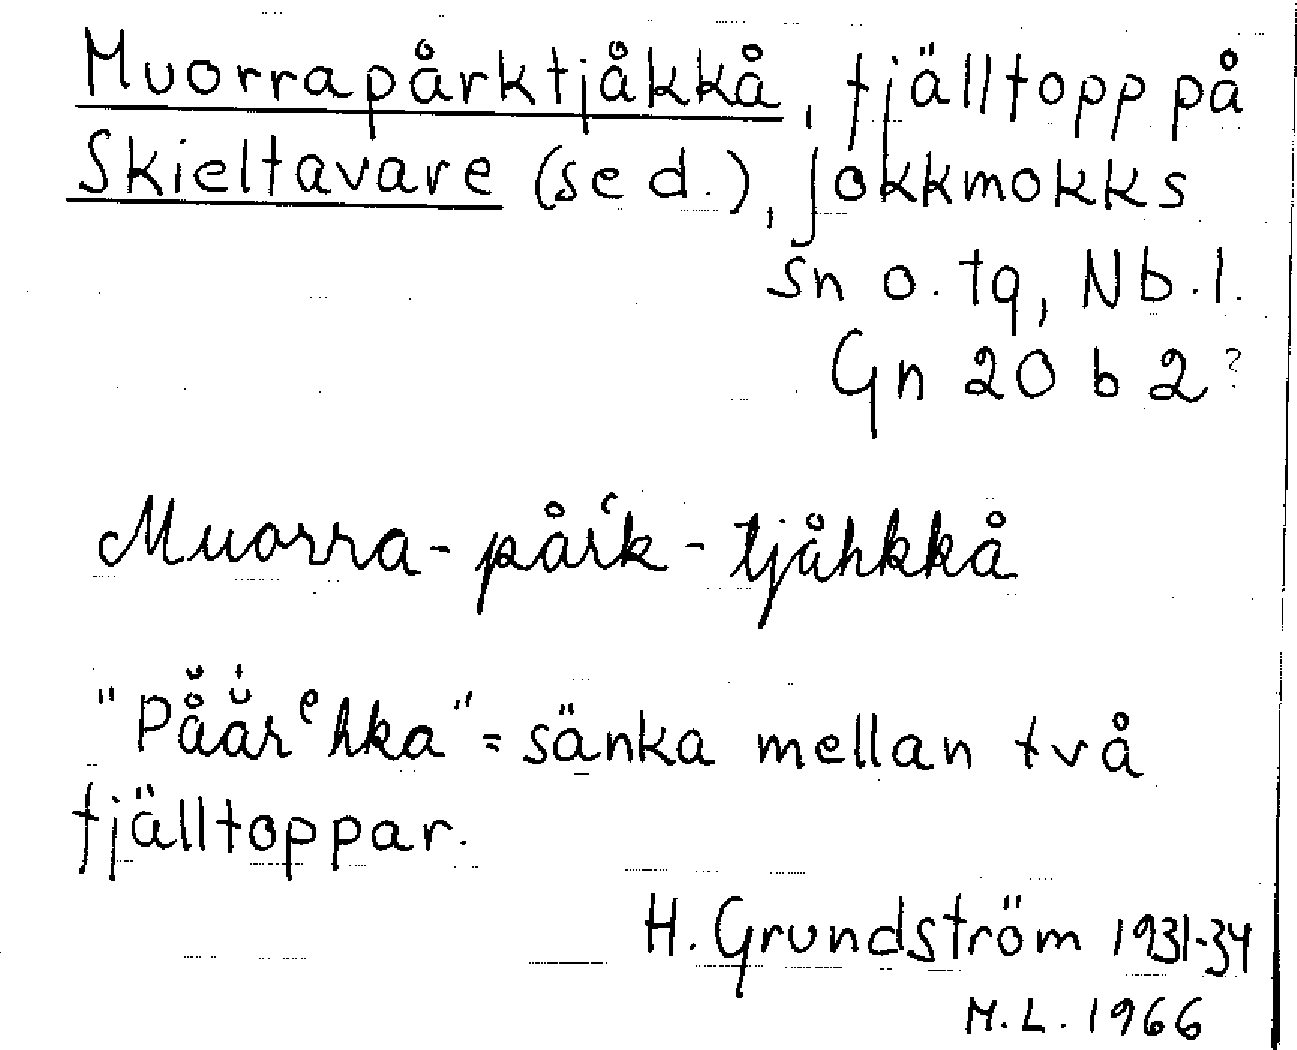 Muorrapårktjåkkå, fjälltopp på
Skieltavare (se d.), Jokkmokks
sn o. tg, Nb.l.
Gn 20 b 2?
Muorra-pårʻk-tjåhkkå
"Påårᵉhka" = sänka mellan två
fjälltoppar.
H. Grundström 1931-34
M.L. 1966